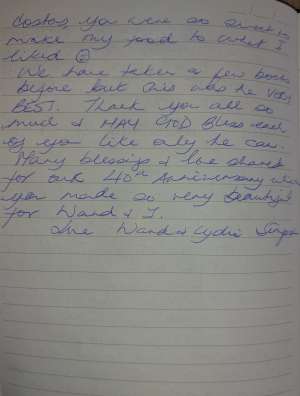 Costas, you were so sweet to
make my food to what I
liked ☺
We have taken a few boats
before but this was the very
BEST. Thank you all so
much & MAY GOD Bless each
of you like only he can.
Many blessings & love shared
for our 40th Anniversary which
you made so very beautiful
for Ward & I.
Love Ward & Lydia